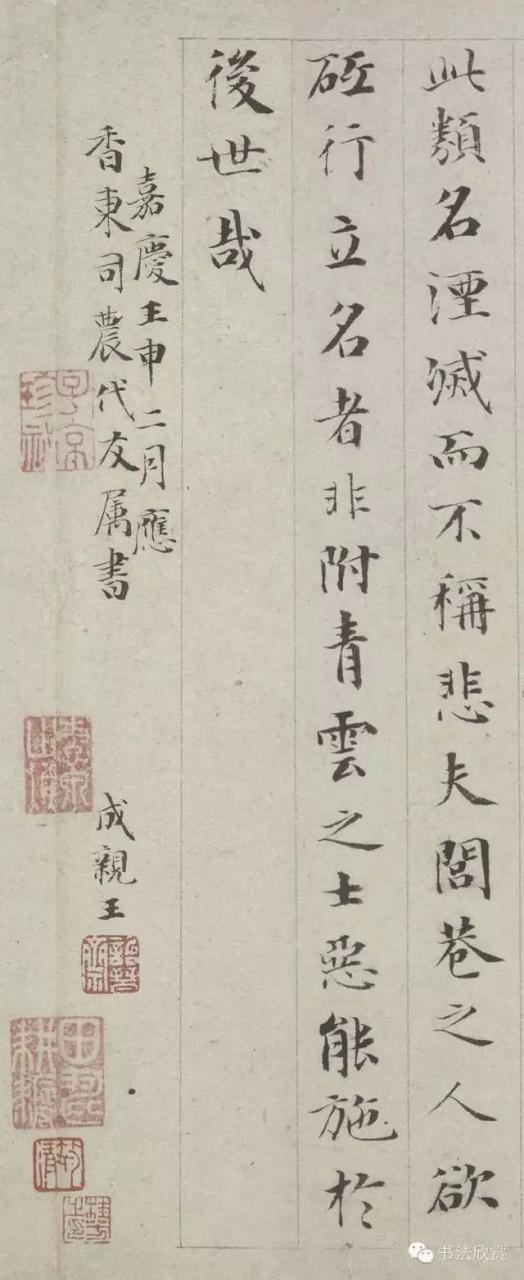 此類名湮滅而不稱悲夫閭巷之人欲
砥行立名者非附青雲之士惡能施於
後世哉
嘉慶壬申二月應
香東司農代友属書
成親王
子京
珍祕
詒晉
齋
書法欣赏